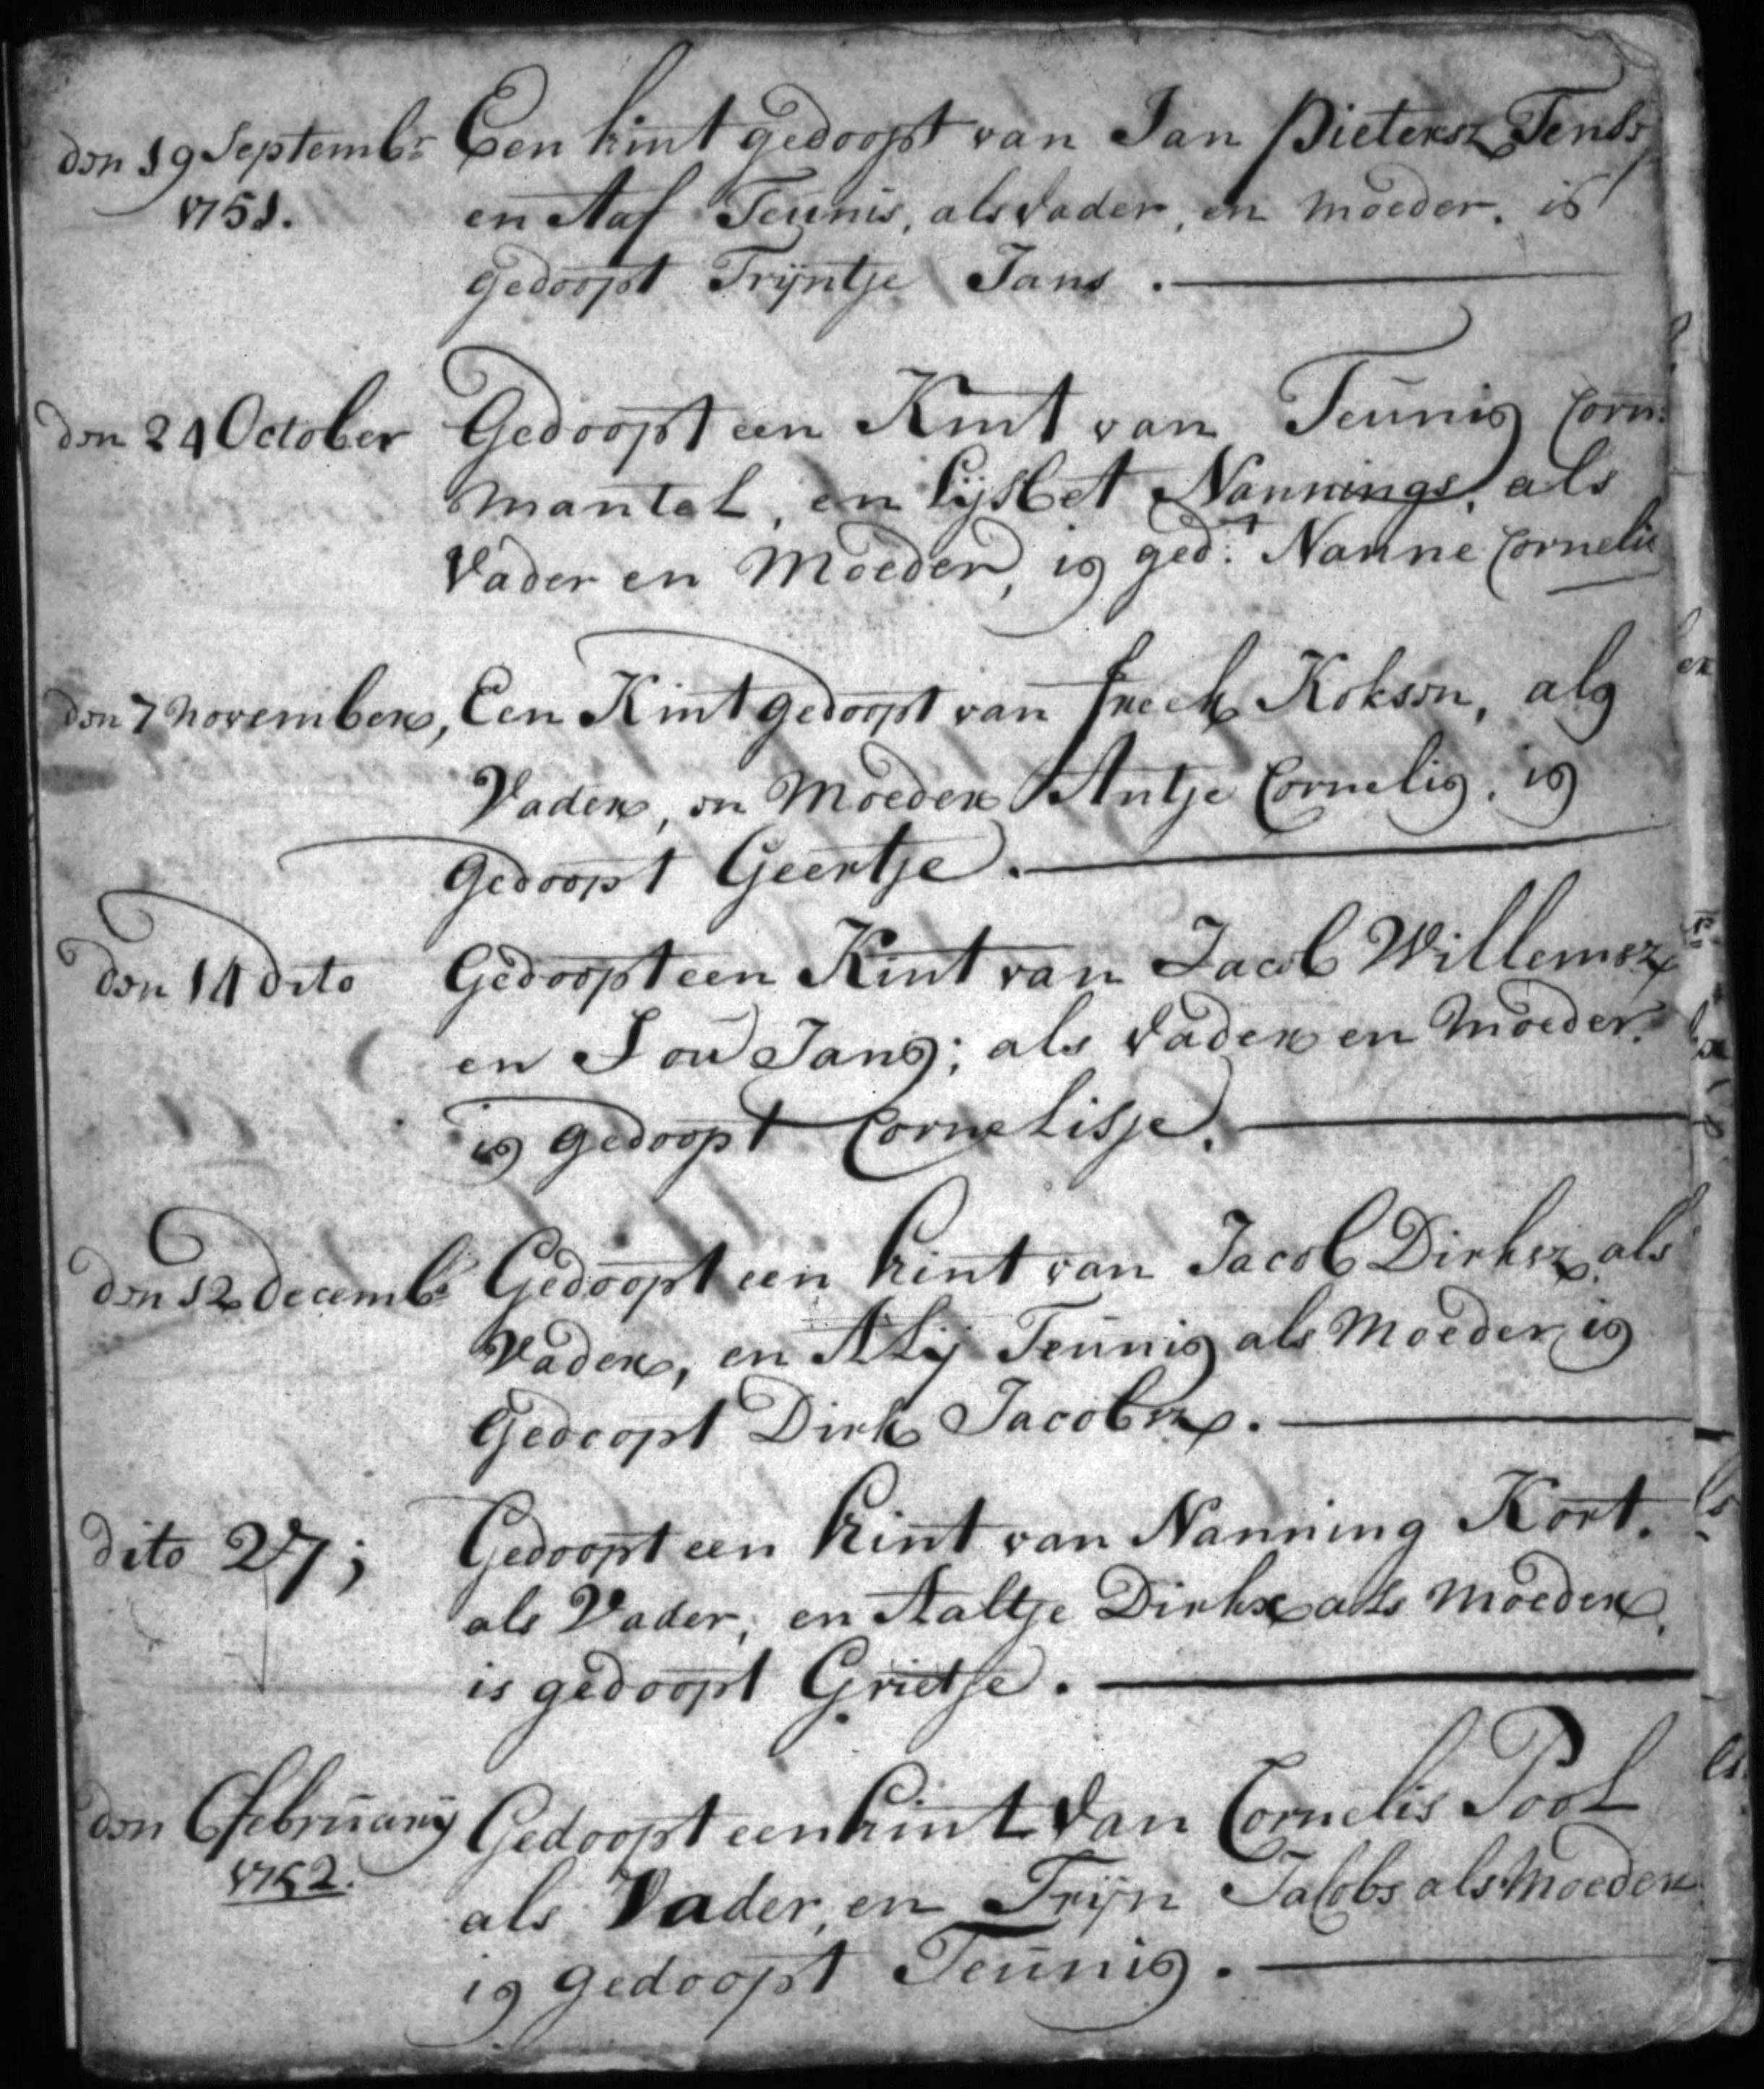 den 19 Septembr Een kint gedoopt van Jan Pietersz
1751. en Aaf Teunis, als vader, en moeder. is
gedoopt Trijntje Jans.
den 24 October Gedoopt een Kint van Teunis Corn:
Mantel, en Lijsbet Nannings, als
Vader en Moeder, is ged:t Nanne Cornelis
den 7 november, Een Kint gedoopt van freek Kokson, als
Vader, en Moeder Antje Cornelis. is
gedoopt Geertje.
den 14 dito Gedoopt een Kint van Jacob Willemsz
en Jans; als vader en moeder.
is gedoopt Cornelisje.
den 12 decembr Gedoopt een kint van Jacob Dirksz als
Vader, en Alij Teunis als Moeder, is
Gedoopt Dirk Jacobsz.
dito 27; Gedoopt een kint van Nanning Kort.
als Vader, en Aaltje Dirks als moeder,
is gedoopt Grietje.
den 6 february Gedoopt een kint van Cornelis Pool
1752. als Vader, en Trijn Jacobs als Moeder
is gedoopt Teunis.